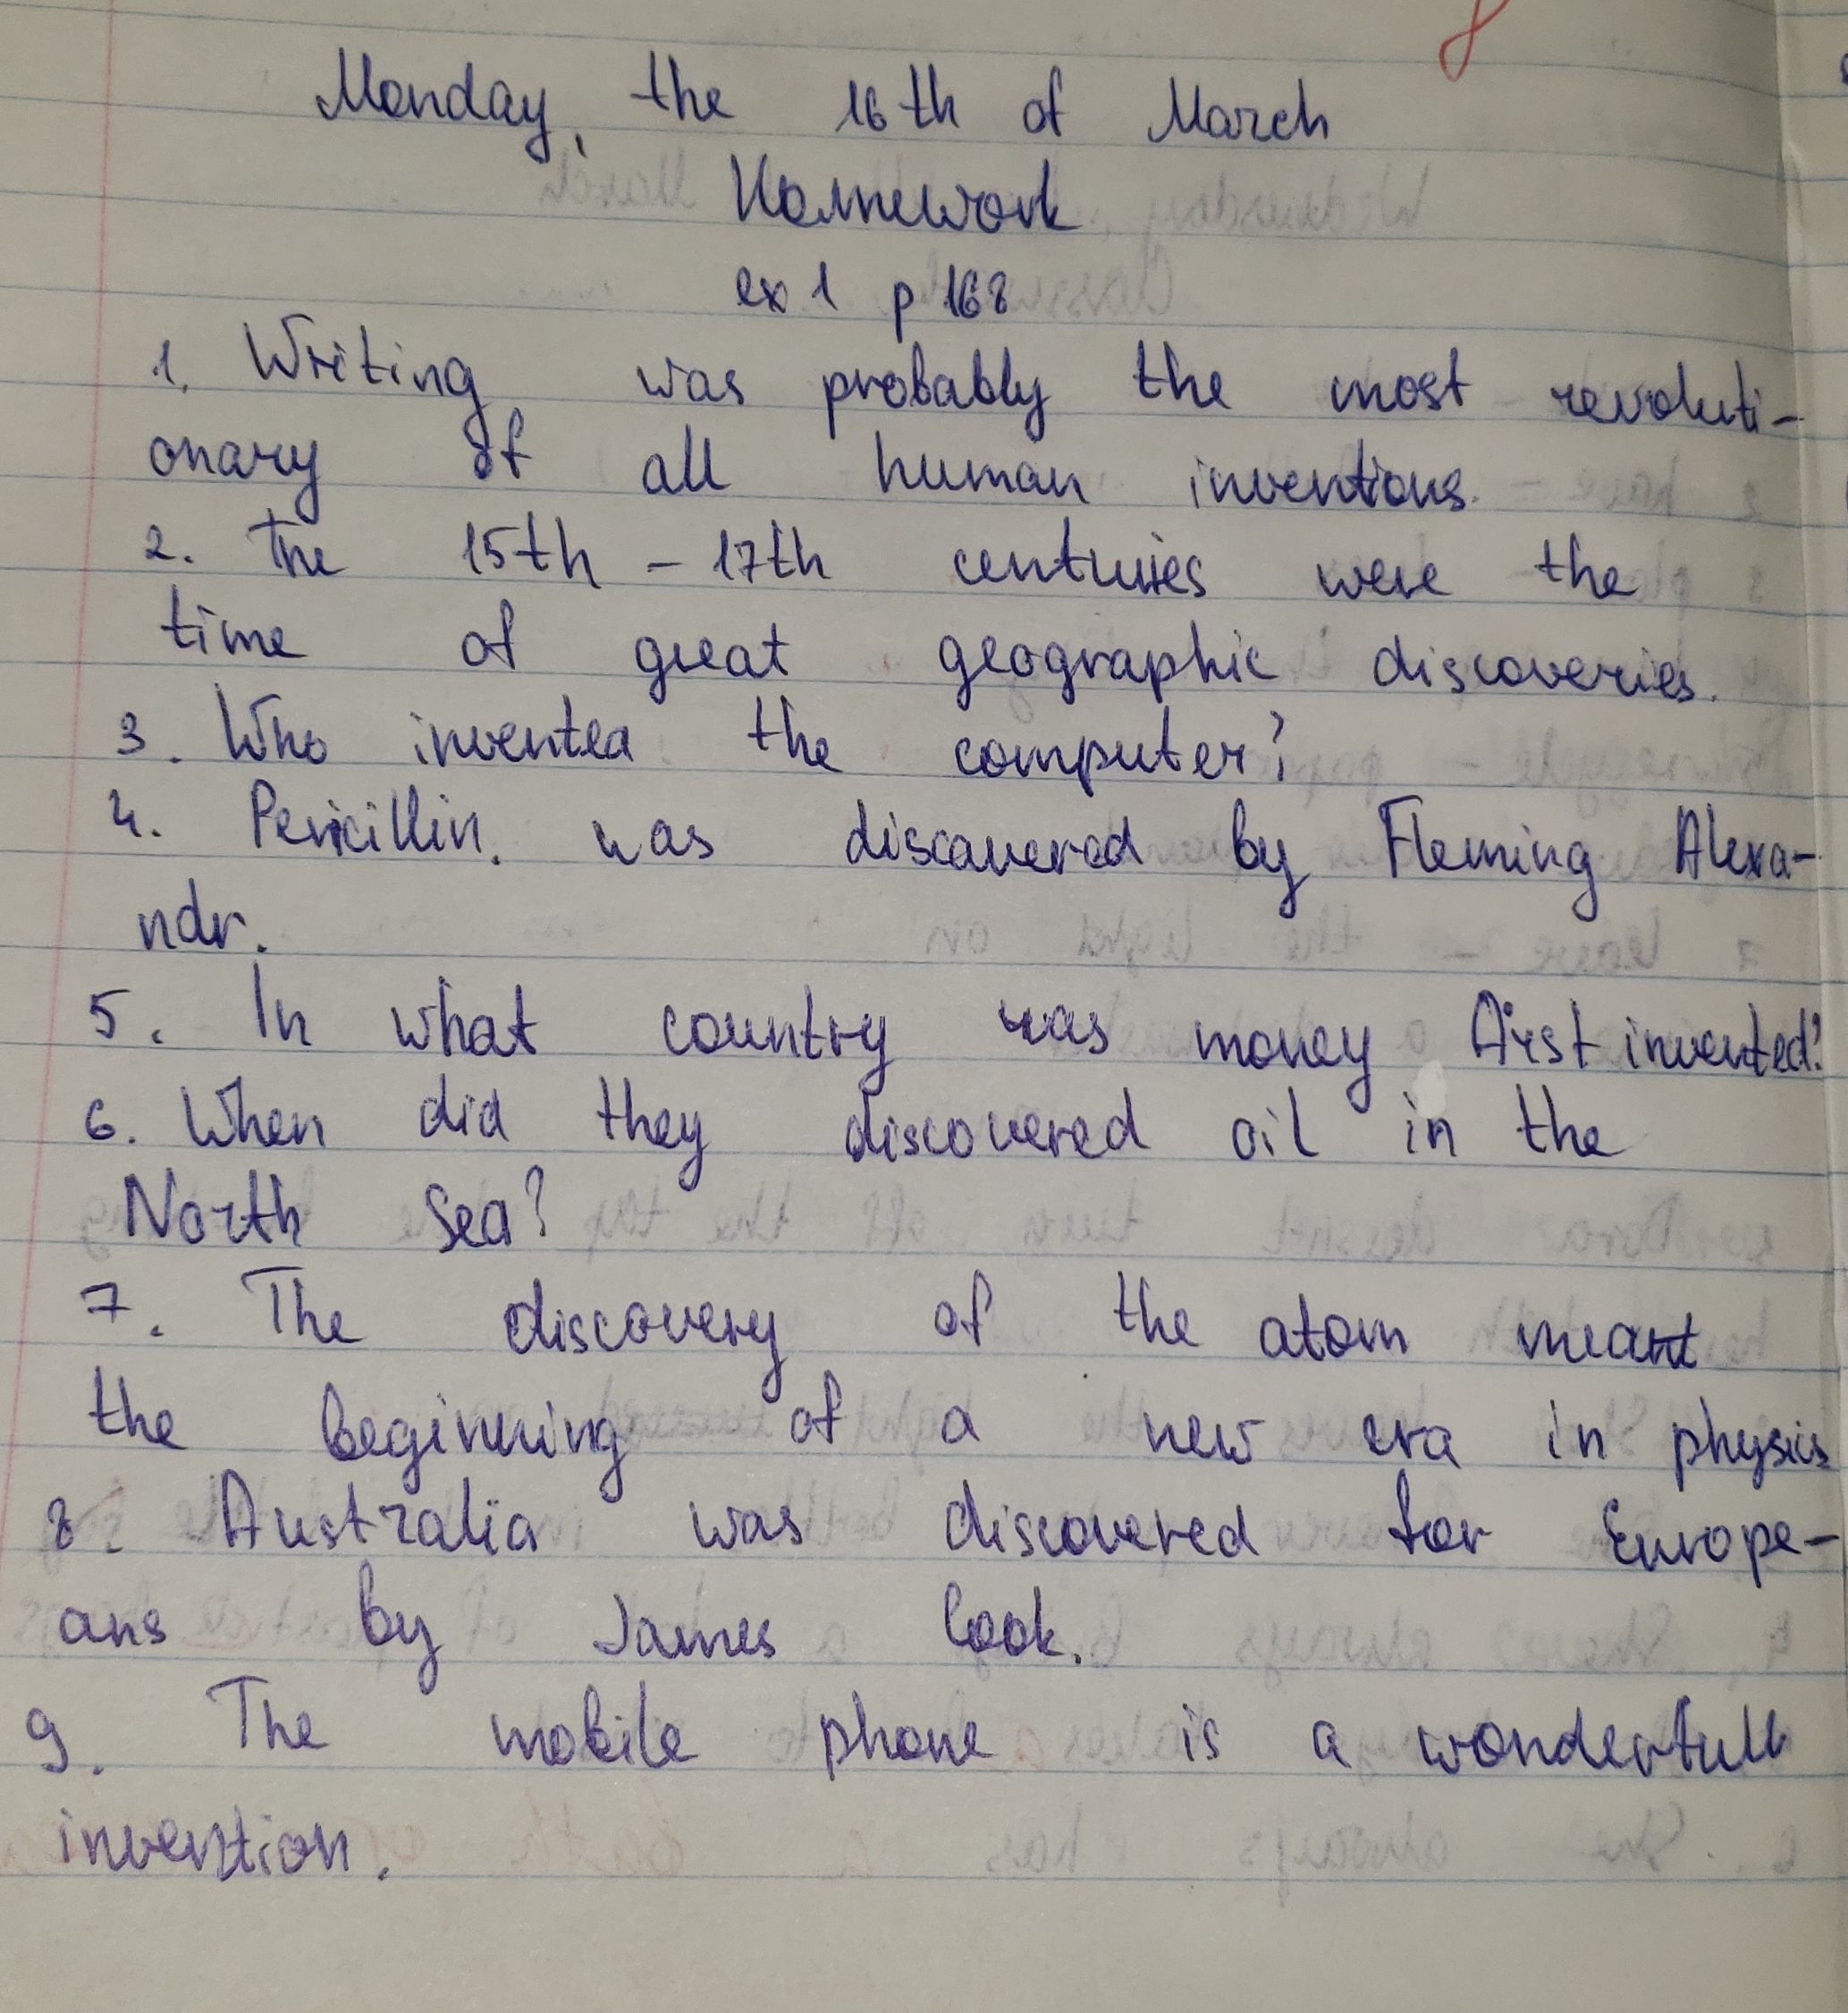 Monday, the 16th of March
Homework
ex 1 p 168
1. Writing was probably the most revoluti-
onary of all human inventions.
2. The 15th - 17th centuries were the
time of great geographic discoveries.
3. Who invented the computer?
4. Penicillin. was discovered by Fleming Alexa-
ndr.
5. In what country was money first invented?
6. When did they discovered oil in the
North Sea?
7. The discovery of the atom meant
the beginning of a new era in physics
8. Australia was discovered for Europe-
ans by James Cook.
9. The mobile phone is a wonderfull
invention.